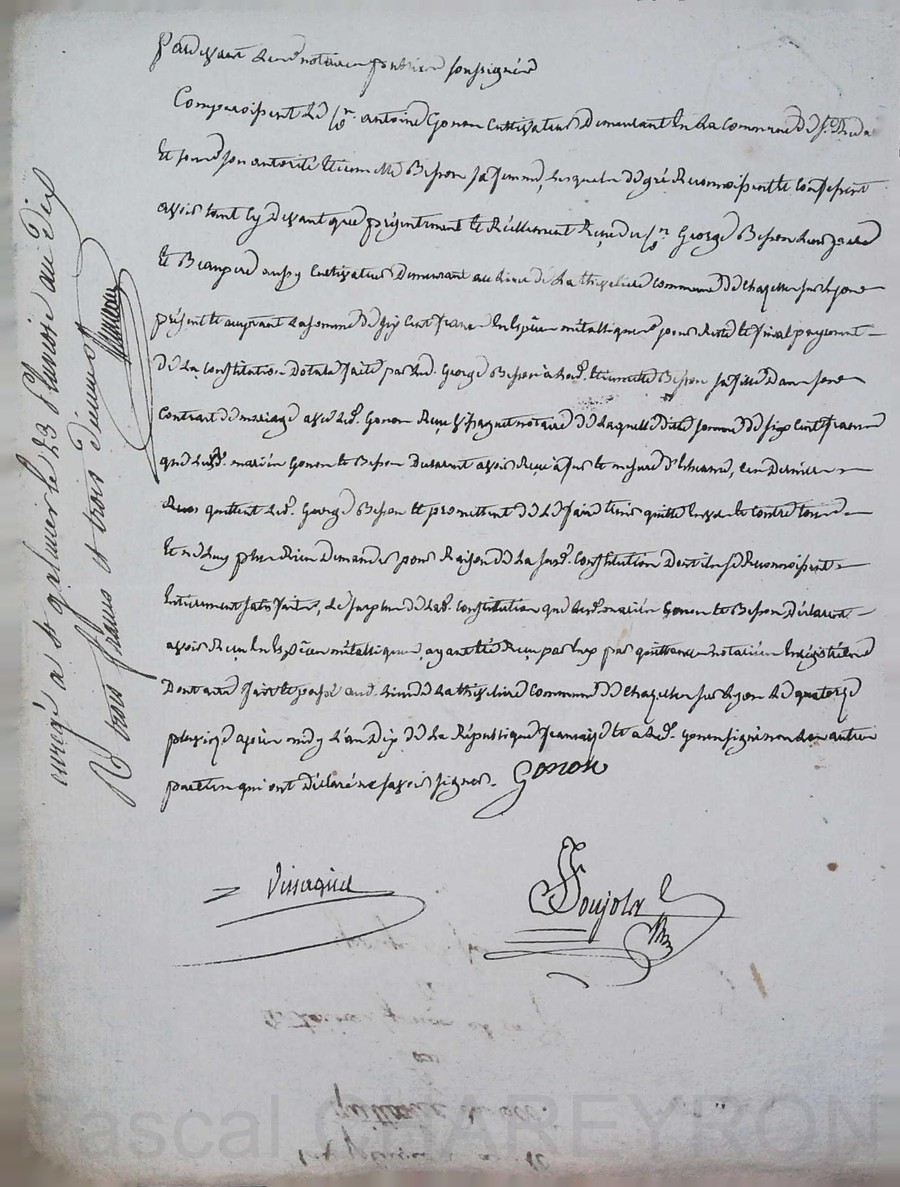 Pardevant deux notaires publics soussignés
Comparoissent le sr. antoine Gonon Cultivateur demeurant en la Commune de st.
Et sous son autorité Etiennette Besson sa femme, lesquels de gré Reconnoissent et Confessent
avoir tant cy devant que présentement et Réellement Reçu du sr. George Besson leur
Et Beaupere aussy Cultivateur demeurant au lieu de la thiveliere commune de chazelle sur lyon
présent et acceptant la somme de six Cent francs En Espèces métalliques pour Reste et final payement
de la Constitution dotale faite par led. George Besson à lad. Etiennette Besson sa fille dans son
Contrat de mariage avec led. Gonon Reçu notaire de laquelle ditte somme de six Cent francs
que lesd. mariés Gonon et Besson declarent avoir Reçu à fur et mesure
quittent led. George Besson et promettent de le faire tenir quitte Envers et Contre tous
Et ne luy plus Rien demander pour Raison de la susd. Constitution dont ils se Reconnoissent
Entierement satisfaits, le surplus de lad. Constitution que lesd. mariés Gonon et Besson déclarent
avoir Reçu En Espèces métalliques, ayant été Reçu par Eux par quittances notariées Enregistrées
Dont acte fait et passé aud. lieu de la thiveliere Commune de chazelle sur lyon le quatorze
pluviose après midy l'an dix de la République française et a led. Gonon signé non les autres
parties qui ont déclaré ne savoir signer. Gonon
Vissaguet
Poujola
enregé à st galmier le 23 pluviose an dix
Rç trois francs et trois décimes
Pascal CHAREYRON